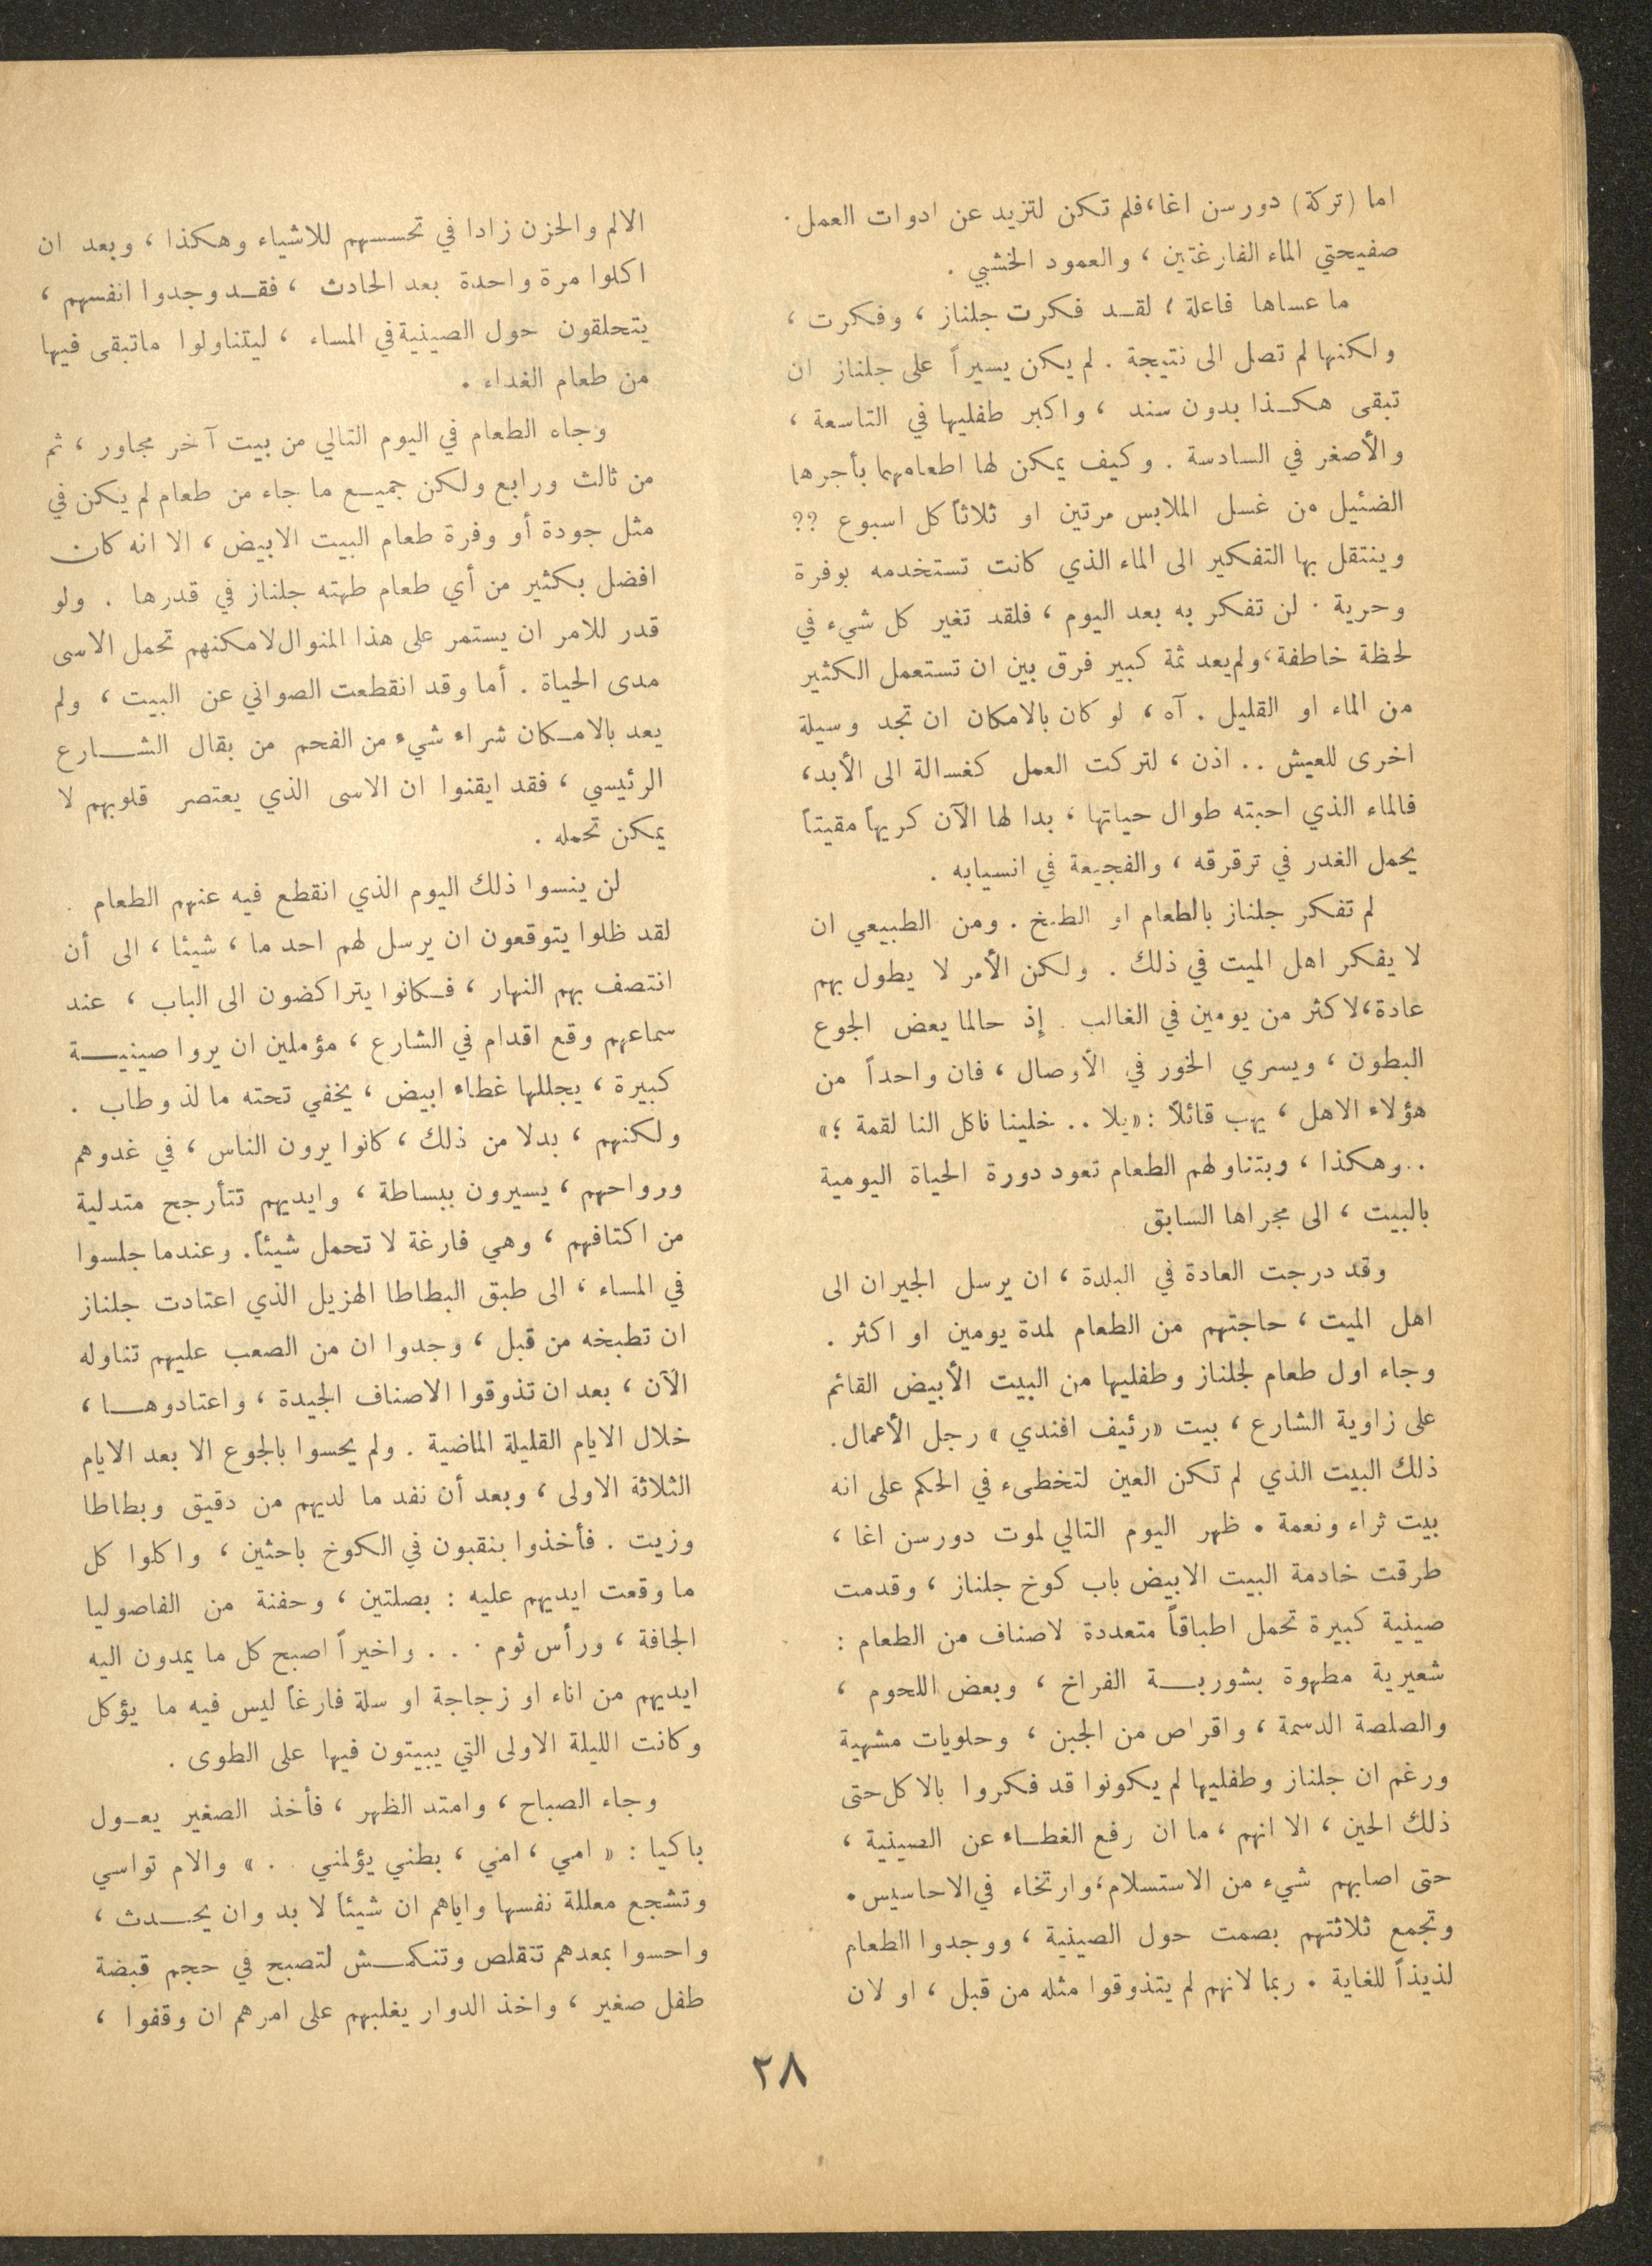 اما (تركة) دورسن اغا، فلم تكن لتزيد عن ادوات العمل.
صفيحتي الماء الفارغتين ، والعمود الخشبي .
ما عساها فاعلة ؟ لقد فكرت جلناز ، وفكرت ،
ولكنها لم تصل الى نتيجة . لم يكن يسيراً على جلناز ان
تبقى هكذا بدون سند ، واكبر طفليها في التاسعة ،
والأصغر في السادسة . وكيف يمكن لها اطعامهما بأجرها
الضئيل من غسل الملابس مرتين او ثلاثاً كل اسبوع ??
وينتقل بها التفكير الى الماء الذي كانت تستخدمه بوفرة
وحرية . لن تفكر به بعد اليوم ، فلقد تغير كل شيء في
لحظة خاطفة، ولم يعد ثمة كبير فرق بين ان تستعمل الكثير
من الماء او القليل . آه ، لو كان بالامكان ان تجد وسيلة
اخرى للعيش .. اذن ، لتركت العمل كغسالة الى الأبد،
فالماء الذي احبته طوال حياتها ، بدا لها الآن كريهاً مقيتاً
يحمل الغدر في ترقرقه ، والفجيعة في انسيابه .
لم تفكر جلناز بالطعام او الطبخ . ومن الطبيعي ان
لا يفكر اهل الميت في ذلك . ولكن الأمر لا يطول بهم
عادة، لاكثر من يومين في الغالب . إذ حالما يعض الجوع
البطون ، ويسري الخور في الأوصال ، فان واحداً من
هؤلاء الاهل ، يهب قائلاً : «يلا .. خلينا ناكل النا لقمة ؛»
.. وهكذا ، وبتناولهم الطعام تعود دورة الحياة اليومية
بالبيت ، الى مجراها السابق
وقد درجت العادة في البلدة ، ان يرسل الجيران الى
اهل الميت ، حاجتهم من الطعام لمدة يومين او اكثر .
وجاء اول طعام لجلناز وطفليها من البيت الأبيض القائم
على زاوية الشارع ، بيت «رئيف افندي » رجل الأعمال.
ذلك البيت الذي لم تكن العين لتخطىء في الحكم على انه
بيت ثراء ونعمة . ظهر اليوم التالي لموت دورسن اغا ،
طرقت خادمة البيت الابيض باب كوخ جلناز ، وقدمت
صينية كبيرة تحمل اطباقاً متعددة لاصناف من الطعام :
شعيرية مطهوة بشوربة الفراخ ، وبعض اللحوم ،
والصلصة الدسمة ، واقراص من الجبن ، وحلويات مشهية
ورغم ان جلناز وطفليها لم يكونوا قد فكروا بالاكل حتى
ذلك الحين ، الا انهم ، ما ان رفع الغطاء عن الصينية ،
حتى اصابهم شيء من الاستسلام، وارتخاء في الاحاسيس.
وتجمع ثلاثتهم بصمت حول الصينية ، ووجدوا الطعام
لذيذاً للغاية . ربما لانهم لم يتذوقوا مثله من قبل ، او لان
الالم والحزن زادا في تحسسهم للاشياء وهكذا ، وبعد ان
اكلوا مرة واحدة بعد الحادث ، فقد وجدوا انفسهم ،
يتحلقون حول الصينية في المساء ، ليتناولوا ماتبقى فيها
من طعام الغداء .
وجاه الطعام في اليوم التالي من بيت آخر مجاور ، ثم
من ثالث ورابع ولكن جميع ما جاء من طعام لم يكن في
مثل جودة أو وفرة طعام البيت الابيض ، الا انه كان
افضل بكثير من أي طعام طهته جلناز في قدرها . ولو
قدر للامر ان يستمر على هذا المنوال لامكنهم تحمل الاسى
مدى الحياة . أما وقد انقطعت الصواني عن البيت ، ولم
يعد بالامكان شراء شيء من الفحم من بقال الشارع
الرئيسي ، فقد ايقنوا ان الاسى الذي يعتصر قلوبهم لا
يمكن تحمله .
لن ينسوا ذلك اليوم الذي انقطع فيه عنهم الطعام .
لقد ظلوا يتوقعون ان يرسل لهم احد ما ، شيئا ، الى أن
انتصف بهم النهار ، فكانوا يتراكضون الى الباب ، عند
سماعهم وقع اقدام في الشارع ، مؤملين ان يروا صينية
كبيرة ، يجللها غطاء ابيض ، يخفي تحته ما لذ وطاب .
ولكنهم ، بدلا من ذلك ، كانوا يرون الناس ، في غدوهم
ورواحهم ، يسيرون ببساطة ، وايديهم تتأرجح متدلية
من اكتافهم ، وهي فارغة لا تحمل شيئاً. وعندما جلسوا
في المساء ، الى طبق البطاطا الهزيل الذي اعتادت جلناز
ان تطبخه من قبل ، وجدوا ان من الصعب عليهم تناوله
الآن ، بعد ان تذوقوا الاصناف الجيدة ، واعتادوها ،
خلال الايام القليلة الماضية . ولم يحسوا بالجوع الا بعد الايام
الثلاثة الاولى ، وبعد أن نفد ما لديهم من دقيق وبطاطا
وزيت . فأخذوا بنقبون في الكوخ باحثين ، واكلوا كل
ما وقعت ايديهم عليه : بصلتين ، وحفنة من الفاصوليا
الجافة ، ورأس ثوم . . . واخيراً اصبح كل ما يمدون اليه
ايديهم من اناء او زجاجة او سلة فارغاً ليس فيه ما يؤكل
وكانت الليلة الاولى التي يبيتون فيها على الطوى .
وجاء الصباح ، وامتد الظهر ، فأخذ الصغير يعول
باكيا : « امي ، امي ، بطني يؤلمني . . » والام تواسي
وتشجع معللة نفسها واياهم ان شيئاً لا بد وان يحدث ،
واحسوا بمعدهم تتقلص وتنكمش لتصبح في حجم قبضة
طفل صغير ، واخذ الدوار يغلبهم على امرهم ان وقفوا ،
٢٨